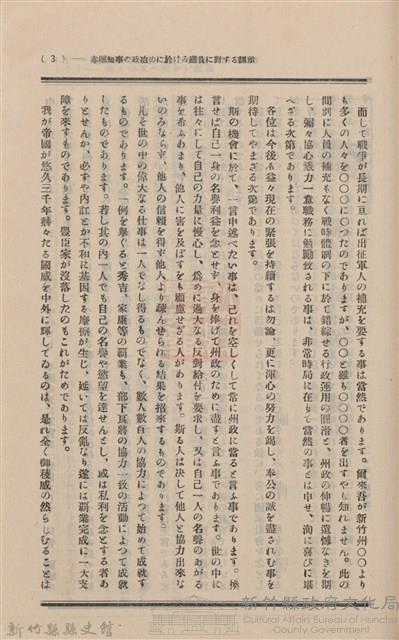 ( 3 )——赤堀知事の政治めに於ける鑛員に對する訓示
而して戰爭が長期に亘れば出征軍人の補充を要する事は當然であります。爾來吾が新竹州〇〇より
も多くの人々を〇〇〇に〇つたのでありますが、〇〇と雖も〇〇〇〇者を出すやも知れません。此の
間別に人員の補充もなく戰時體制の下に於て錯綜せる行政運用の圓滑と、州政の伸暢に遺憾なきを期
し、彌々協心戮力一意職務に勉勵致される事は、非常時局に在りて當然の事とは申せ、洵に喜びに堪
へざる次第であります。
各位は今後も益々現在の緊張を持續するは勿論、更に渾心の努力を竭し、奉公の誠を盡される事を
期待してやまざる次第であります。
斯の機會に於て、一言申述べたい事は、己れを空しくして常に州政に當ると言ふ事であります。換
言せば自己一身の名譽利益を念とせず、身を捧げて州政のために盡すと言ふ事であります。世の中に
は往々にして自己の力量に慢心し、爲めに過大なる反對給付を要求し、又は自己一人の名聲のあがる
事を希ふあまり、他人に害を及ぼすをも顧慮せざる人があります。斯る人は決して他人と協力出來な
いのみならず、他人の信賴を得ず他人より疎んぜられる結果を招來するものであります。
凡を世の中の偉大なる仕事は一人でなし得るものでなく、數人數百人の協力によつて始めて成就す
るものであります。一例を擧ぐると秀吉、家康等の覇業も、部下眞將の協力一致の活動によつて成就
したものであります。若し其の内一人でも自己の名譽や慾望を達せんとし、或は私利を念とする者あ
りとせんか、必ずや内訌とか不和に基因する摩擦が生じ、延いては反亂なり遂には覇業完成に一大支
障を來すものであります。豐臣家が沒落したのもこれがためであります。
我が帝國が悠久三千年赫々たる國威を中外に輝してゐるのは、是れ全く御稜威の然らしむることは
新竹縣縣史館
新竹縣政府文化局
Cultural Affairs Bureau of Hsinchu
County Government